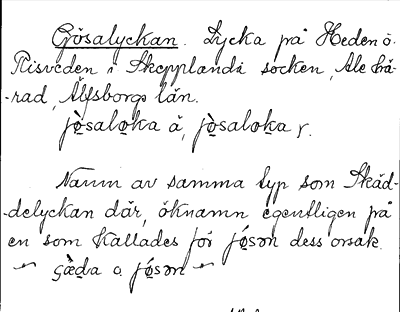 Gösalyckan. Lycka på Heden ö.
Risveden i Skepplanda socken, Ale hä-
-rad, Älfsborgs län.
jò̤saloka å, jò̤saloka r.
Namn av samma typ som Skäd-
-delyckan där, öknamn egentligen på
en som kallades för jó̤sən dess orsak.
~ gæ̀da o. jó̤sən ~